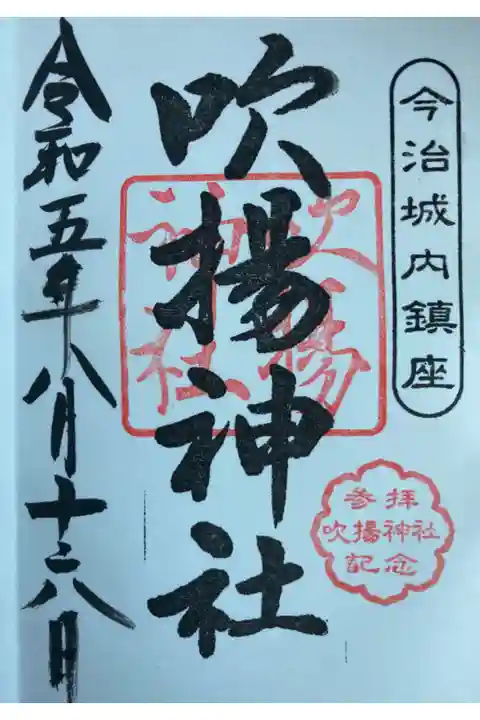 今治城内鎮座
吹揚神社
吹揚
神社
参拝
吹揚神社
記念
令和五年八月十六日